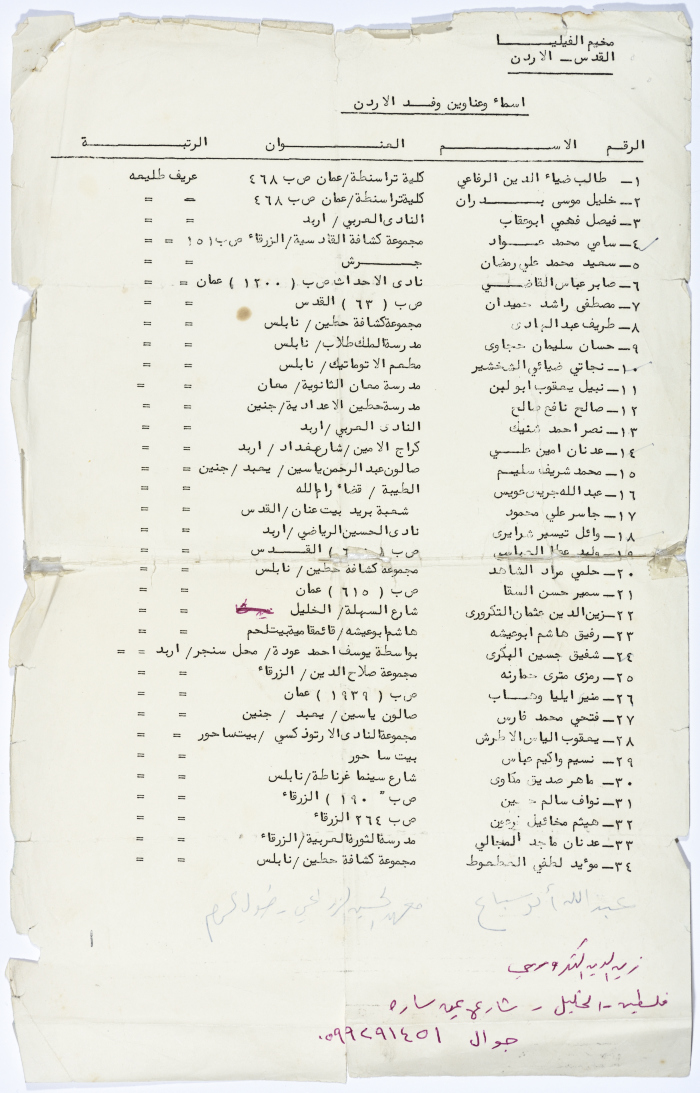 مخيم الفيليبـــا
القدس ــ الاردن
اسماء وعناوين وفـد الاردن
الرقم الاســـم العنــوان الرتبـة
١ــ طالب ضياء الدين الرفاعي كلية تراسنطة/عمان ص ب ٤٦٨ عريف طليعه
٢ــ خليل موسى بـــدران كلية تراسنطة/عمان ص ب ٤٦٨ = =
٣ــ فيصل فهمي ابوعقاب النادى العربي / اربد = =
٤ــ سامي محمد عــواد مجموعة كشافة القادسية/الزرقاء ص ب ١٥١ = =
٥ــ سعيد محمد علي رمضان جـــرش = =
٦ــ صابر عباس القاضــي نادى الاحداث ص ب ( ١٢٠٠ ) عمان = =
٧ــ مصطفى راشد حميدان ص ب ( ٦٣ ) القدس = =
٨ــ طريف عبد الهادى مجموعة كشافة حطين/ نابلس = =
٩ــ حسان سليمان حجاوى مدرسة الملك طلاب/ نابلس = =
١٠ــ نجاتي ضيائي الشخشير مطعم الاتوماتيك/ نابلس = =
١١ــ نبيل يعقوب ابو لبن مدرسة معان الثانوية/ معان = =
١٢ــ صالح نافع صالح مدرسة حطين الاعدادية/ جنين = =
١٣ــ نصر احمد شنيك النادى العربي/ اربد = =
١٤ــ عدنان امين علــي كراج الامين/شارع بغداد / اربد = =
١٥ــ محمد شريف سليم صالون عبد الرحمن ياسين/ يعبد/جنين = =
١٦ــ عبد الله جريس عويس الطيبة / قضاء رام الله = =
١٧ــ جاسر علي محمود شعبة بريد بيت عنان/القدس = =
١٨ــ وائل تيسير شرايرى نادى الحسين الرياضي/ اربد = =
١٩ــ وليد عطا العباسي ص ب ( ٦٠٠ ) القــدس = =
٢٠ــ حلمي مراد الشاهد مجموعة كشافة حطين/ نابلس = =
٢١ــ سمير حسن السقا ص ب ( ٦١٥ ) عمان = =
٢٢ــ زين الدين عثمان التكرورى شارع السهلة/ الخليل = =
٢٣ــ رفيق هاشم ابوعيشه هاشم ابوعيشه/ قائمقامية بيت لحم = =
٢٤ــ شفيق حسين البكرى بواسطة يوسف احمد عودة/ محل سنجر/ اربد = =
٢٥ــ رمزى مترى حمارنه مجموعة صلاح الدين/ الزرقاء = =
٢٦ــ منير ايليا وهــاب ص ب ( ١٩٣٩ ) عمان = =
٢٧ــ فتحي محمد فارس صالون ياسين/ يعبد / جنين = =
٢٨ــ يعقوب الياس الاطرش مجموعة النادى الارتوذكسي /بيت ساحور = =
٢٩ــ نسيم واكيم عباس بيت ساحور = =
٣٠ــ ماهر صديق مكاوى شارع سينما غرناطة/نابلس = =
٣١ــ نواف سالم حسين ص ب " ١٩٠ ) الزرقاء = =
٣٢ــ هيثم مخائيل ص ب ٢٦٤ الزرقاء = =
٣٣ــ عدنان ماجد المجالي مدرسة الثورة العربية/الزرقاء = =
٣٤ــ مؤيد لطفي الطعوط مجموعة كشافة حطين/نابلس = =
عبد الله أبو سباع
زين الدين التكروري
فلسطين - الخليل - شارع عين ساره
جوال ٠٥٩٩٢٩١٤٥١